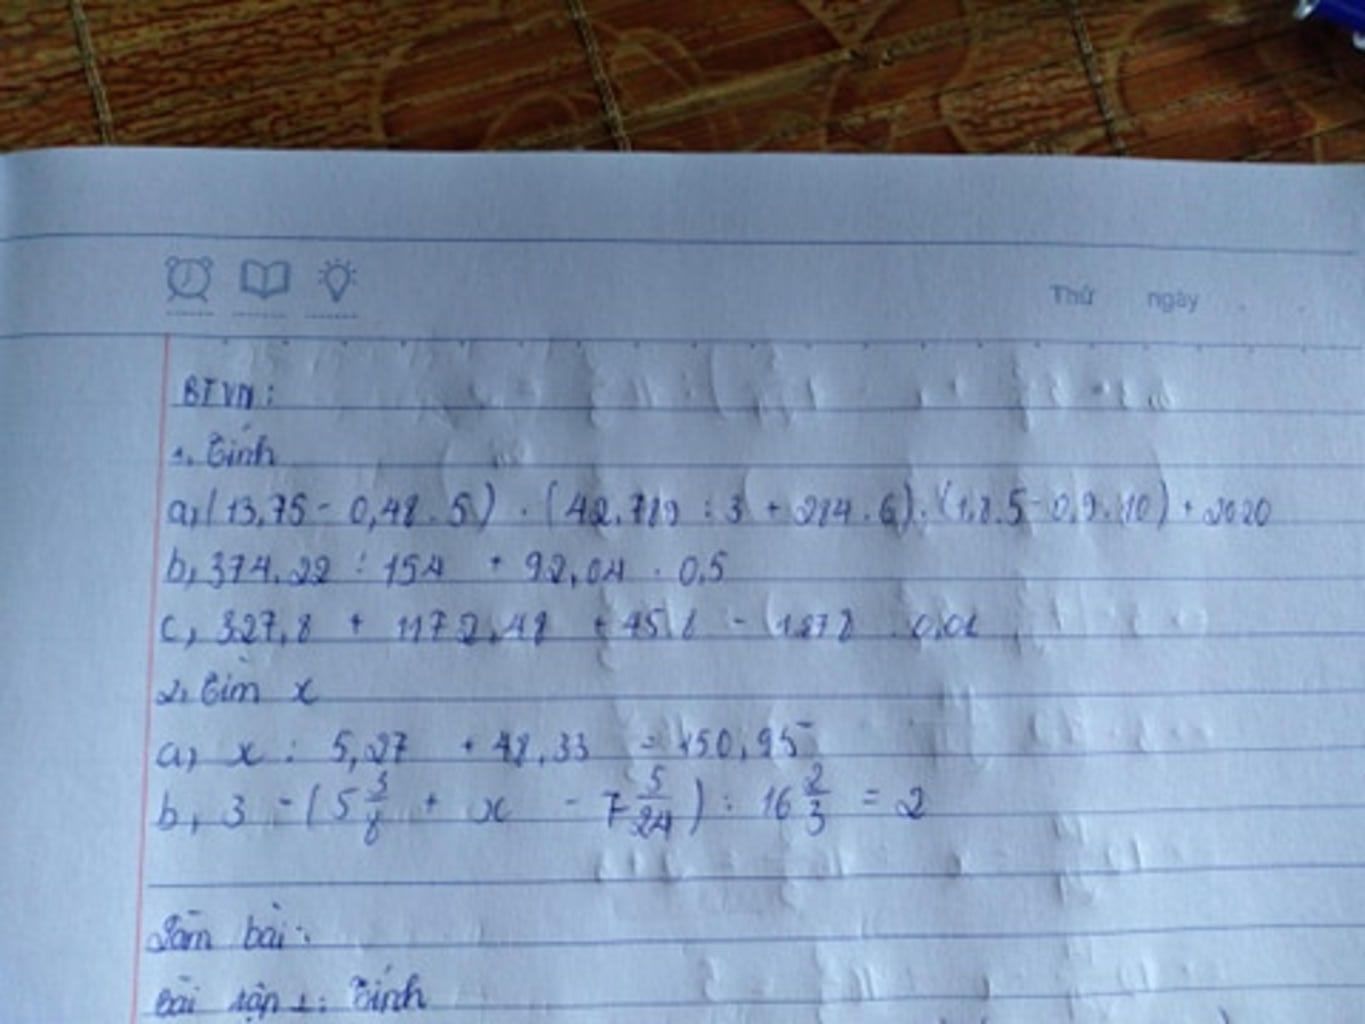 Thứ ngày
BTVN:
1. Tính
a, (13,75 - 0,48 . 5) . (42,789 : 3 + 284 . 6) . (1,8 . 5 - 0,9 . 10) + 2020
b, 374,22 : 154 + 92,04 . 0,5
c, 327,8 + 1172,48 + 45,8 - 1878 . 0,01
2, Tìm x
a, x : 5,27 + 48,33 = 150,95
b, 3 - (5 3/8 + x - 7 5/24) : 16 2/3 = 2
Làm bài:
Bài tập 1: Tính